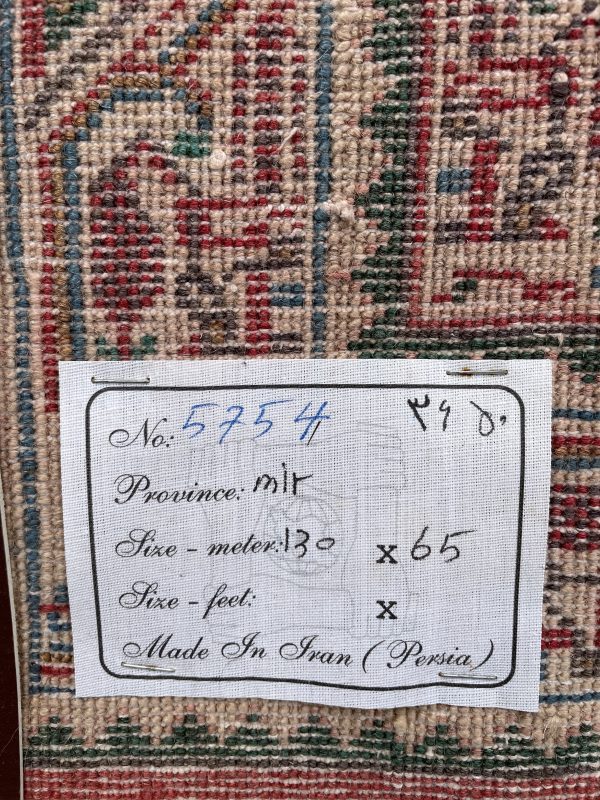 No: 5754 ۳۶۵۰
Province: mir
Size - meter: 130 x 65
Size - feet: x
Made In Iran ( Persia )